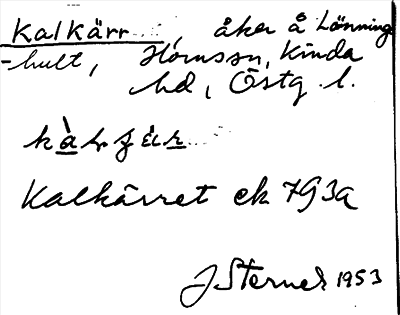 Kalkärr, åker å Lönning
-hult, Hornssn, Kinda
hd, Östg. l.
Kalkärret ek 7G3a
J Sterner 1953